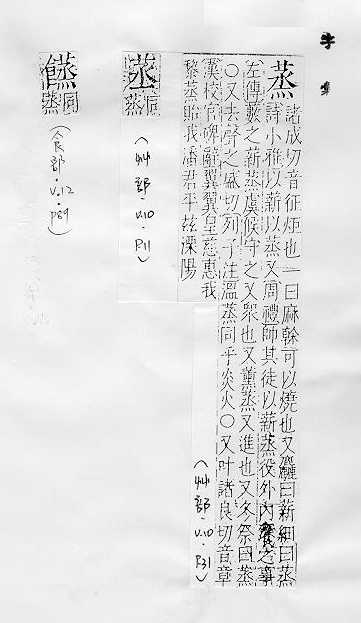 蒸 諸成切音征炬也一曰麻榦可以燒也又麤曰薪細曰蒸
詩小雅以薪以蒸又周禮師其徒以薪蒸役外內饔之事
左傳藪之薪蒸虞候守之又衆也又薰蒸又進也又冬祭曰蒸
○又去聲之盛切列子注溫蒸同乎炎火○又叶諸良切音章
漢校官碑翼翼皇慈惠我
黎蒸貽我潘君平玆溧陽
(艸部.V.10.P.31)
蒸同
(艸部.V.10.P.11)
蒸同
(食部.V.12.P.89)